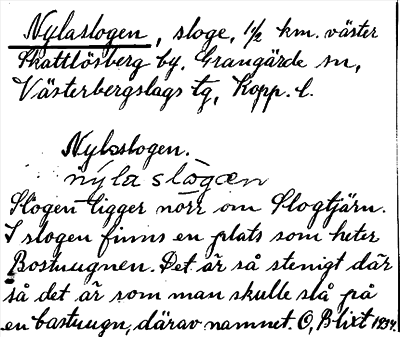 Nylaslogen, sloge, 1 1/2 km. väster
Skattlösberg by, Grangärde sn,
Västerbergslags tg, Kopp. l.
Nylaslogen.
nyla slògæn
Slogen ligger norr om Slogtjärn.
I slogen finns en plats som heter
Bostuugnen. Det är så stenigt där
så det är som man skulle slå på
en bastuugn, därav namnet. O, Blixt 1934.